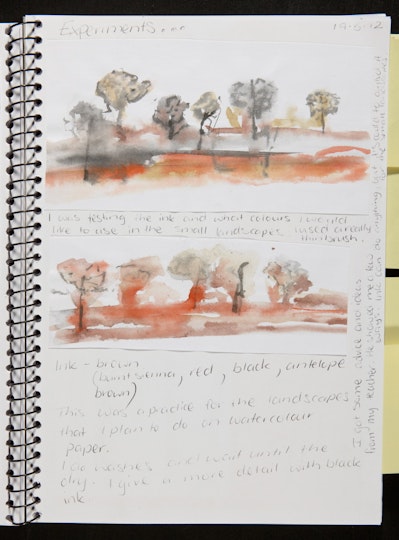 Experiments...
19-5-12
I was testing the ink and what colours I would
like to use in the small landscapes. I used a really
thin brush.
Ink - brown
(burnt sienna, red, black, antelope
brown)
This was a practice for the landscapes
that I plan to do on watercolour
paper.
I do washes and wait until the
dry. I give a more detail with black
ink.
I got some advice and ideas
from my teacher. He showed me a few
ways. Ink can do anything